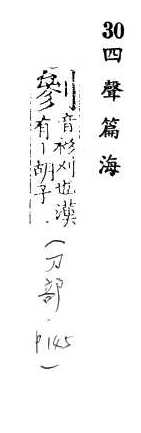 30四聲篇海
剼
音衫刈也漢
有丨胡子．
(刀部．p145)